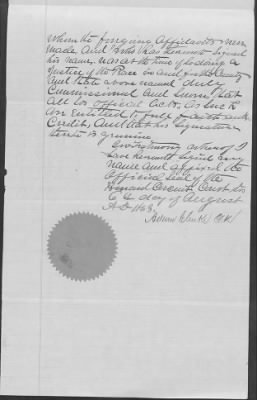 whom the foregoing Affidavits were
made and who has hereunto signed
his name was at the time of so doing a
Justice of the Peace in and for the County
and State above named duly
Commissioned and Sworn, that
all his official Acts as such
are Entitled to full faith and
Credit, and that his Signature
thereto is genuine
In testimony whereof I
have hereunto signed my
name and affixed the
Official Seal of the
Circuit Court this
6th day of August
A.D. 186